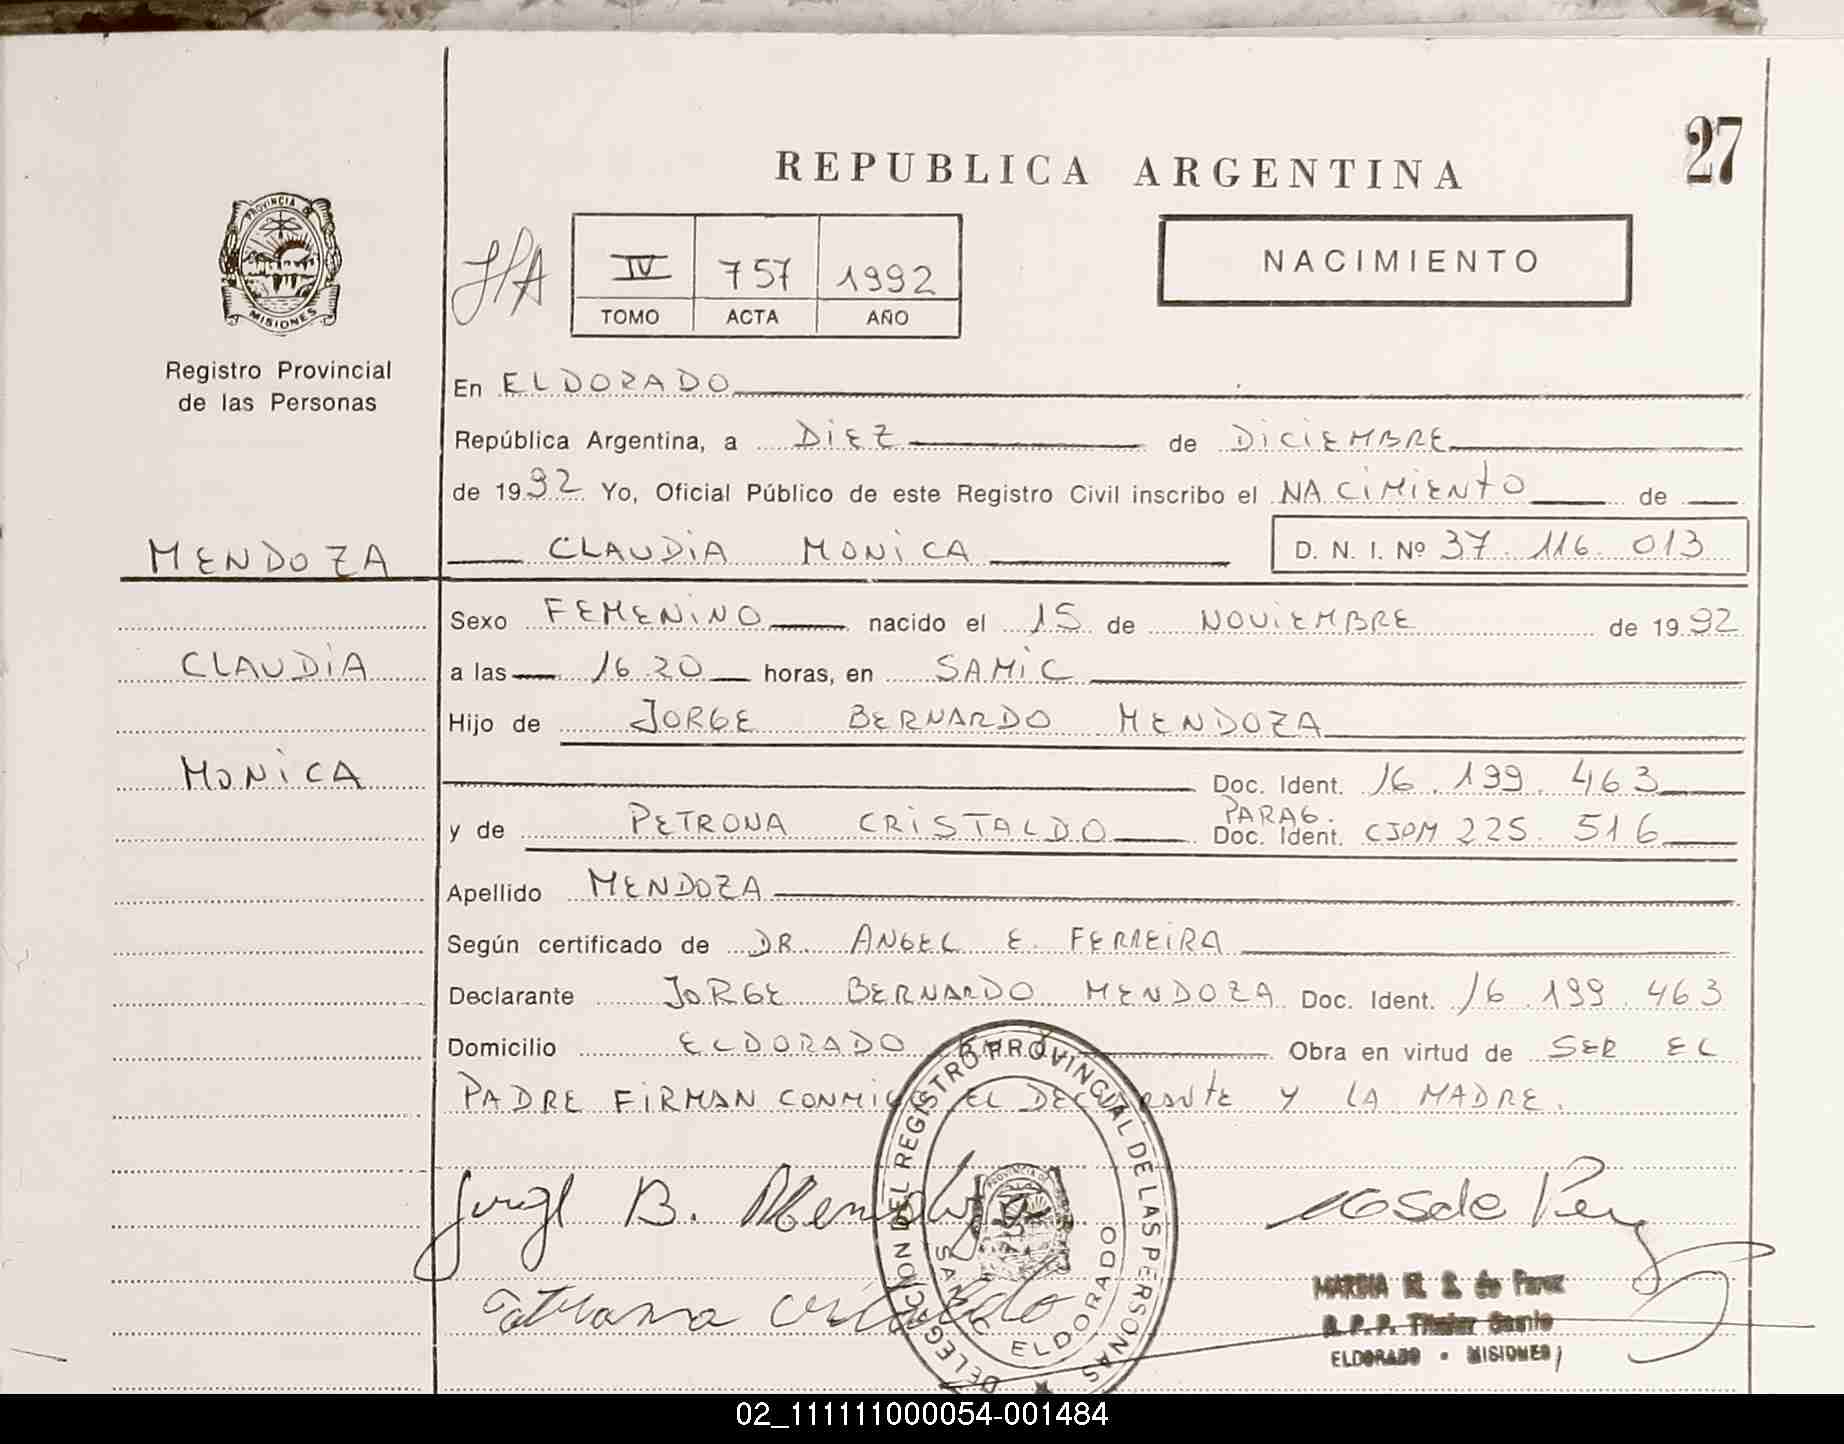 27
REPUBLICA ARGENTINA
PROVINCIA DE
MISIONES
IV 757 1992
TOMO ACTA AÑO
NACIMIENTO
Registro Provincial
de las Personas
En ELDORADO
República Argentina, a DIEZ de DICIEMBRE
de 1992 Yo, Oficial Público de este Registro Civil inscribo el NACIMIENTO de
MENDOZA
CLAUDIA MONICA D. N. I. Nº 37.116.013
Sexo FEMENINO nacido el 15 de NOVIEMBRE de 1992
CLAUDIA
a las 16 20 horas, en SAMIC
Hijo de JORGE BERNARDO MENDOZA
MONICA
Doc. Ident. 16.199.463
PARAG.
y de PETRONA CRISTALDO Doc. Ident. CJPM 225.516
Apellido MENDOZA
Según certificado de DR. ANGEL E. FERREIRA
Declarante JORGE BERNARDO MENDOZA Doc. Ident. 16.199.463
Domicilio ELDORADO Obra en virtud de SER EL
PADRE FIRMAN CONMIGO EL DECLARANTE Y LA MADRE.
DELEGACION DEL REGISTRO PROVINCIAL DE LAS PERSONAS
SAMIC ELDORADO
Jorge B. Mendoza
de Perez
Petrona Cristaldo
de Perez
ELDORADO - MISIONES
02_111111000054-001484